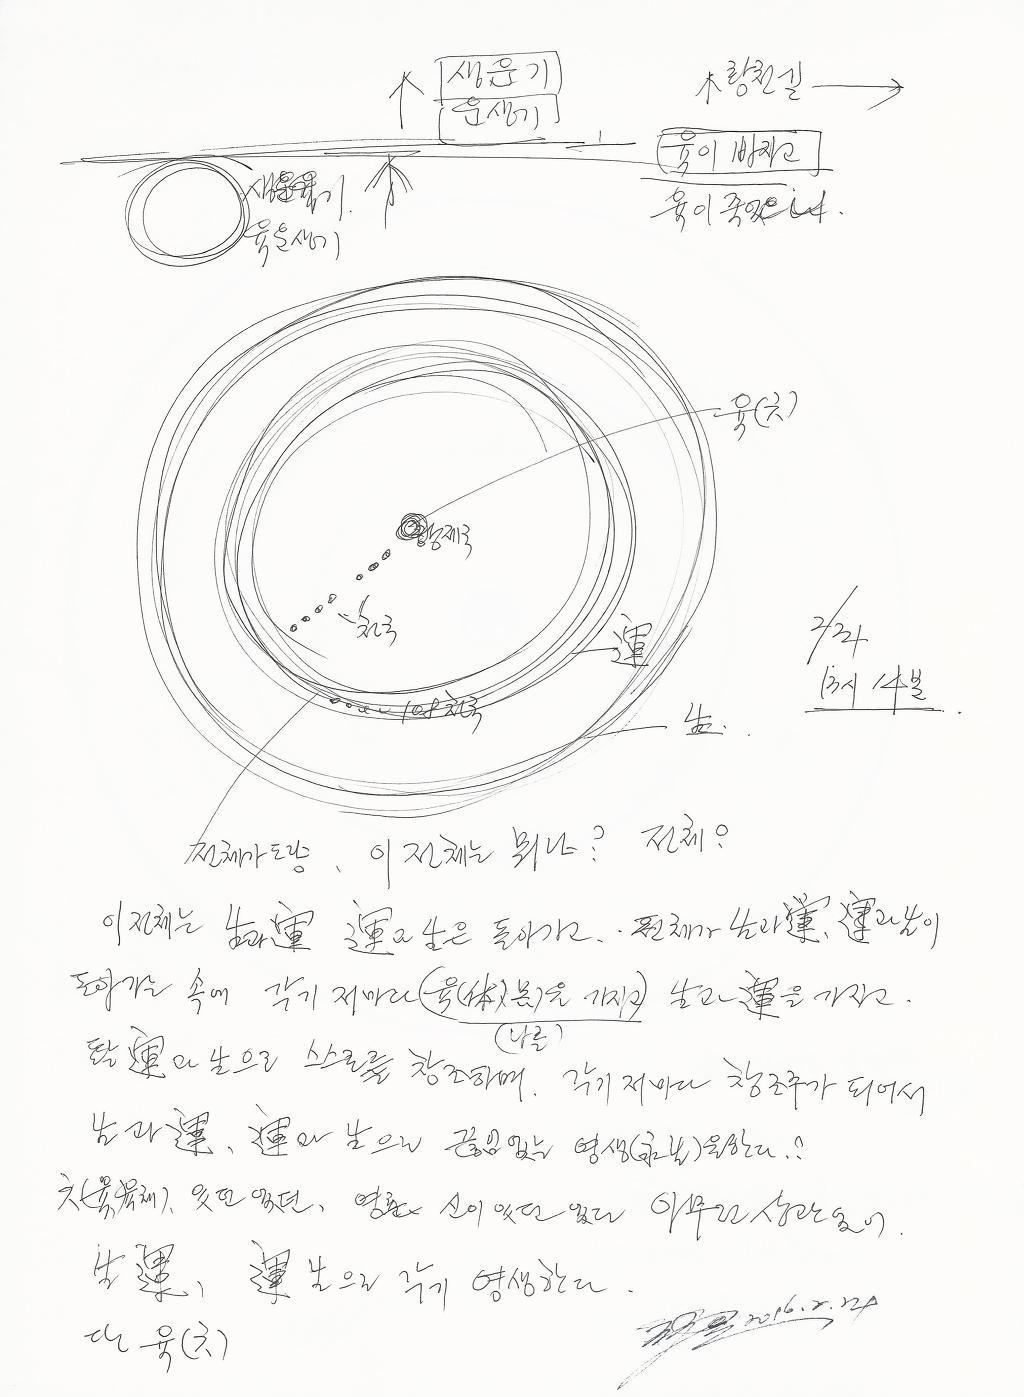 생운기
운생기
육이 빠지고
육이 죽었으니
육운생기
육(六)
황제국
천국
運
108 천국
生
2/24
13시 14분
전체가 도량, 이 전체는 뭐냐? 전체?
이 전체는 生과 運 運과 生은 돌아가고, 전체가 生과 運, 運과 生이
돌아가는 속에 각기 저마다 (육(体)을 가지고) 生과 運을 가지고.
(나를)
運과 生으로 스스로를 창조하며, 각기 저마다 창조주가 되어서
生과 運, 運과 生으로 끊임없는 영생을 한다.
있던 없던, 신이 있던 없던 아무런 상관없이.
生 運, 運 生으로 각기 영생한다.
단 육(六)
2016. 2. 24